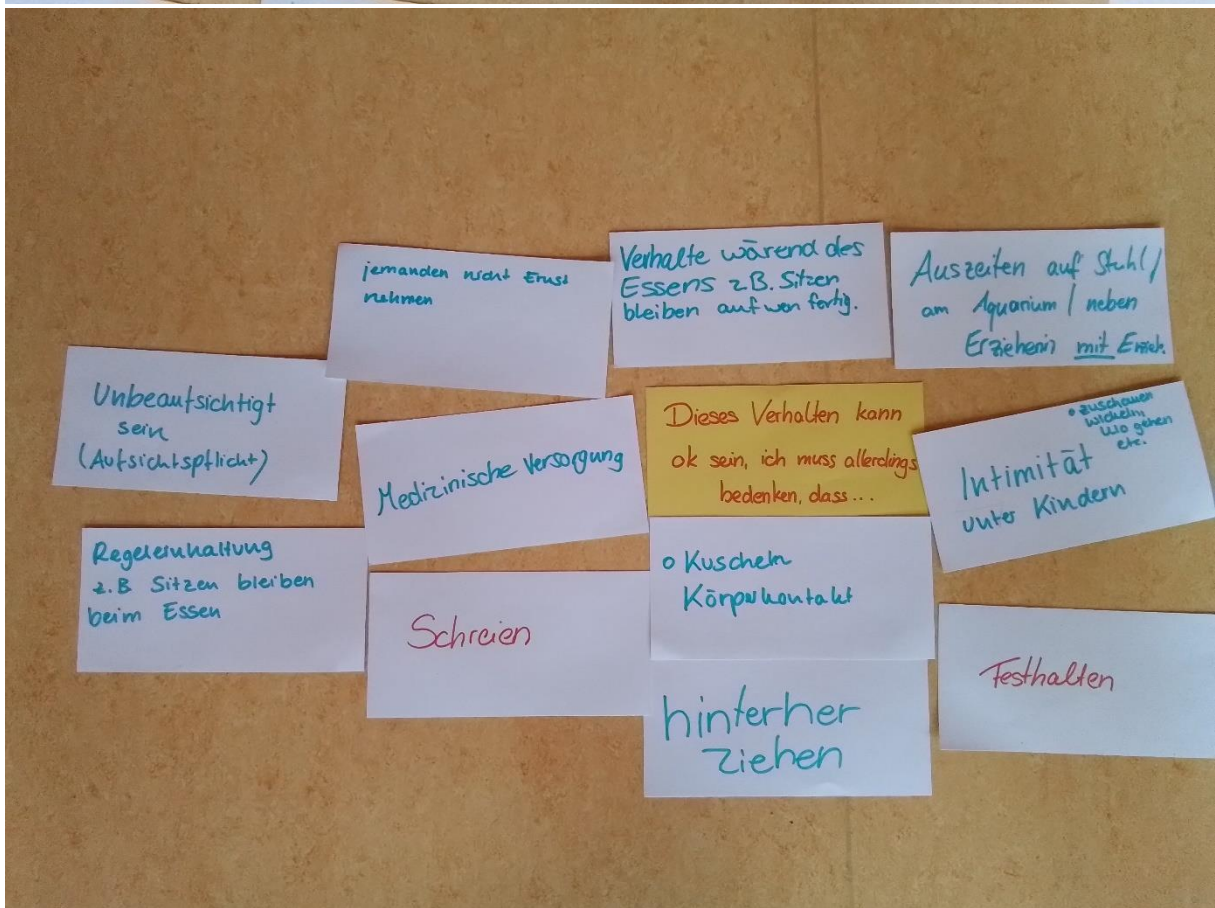 jemanden nicht Ernst
nehmen
Verhalte wärend des
Essens z.B. Sitzen
bleiben auf wen fertig.
Auszeiten auf Stuhl /
am Aquarium / neben
Erzieherin mit Erzieh.
Unbeaufsichtigt
sein
(Aufsichtspflicht)
Medizinische Versorgung
Dieses Verhalten kann
ok sein, ich muss allerdings
bedenken, dass...
• zuschauen
wickeln,
etc.
gehen
Intimität
unter Kindern
Regeleinhaltung
z.B Sitzen bleiben
beim Essen
Schreien
o Kuscheln
Körperkontakt
Festhalten
hinterher
ziehen